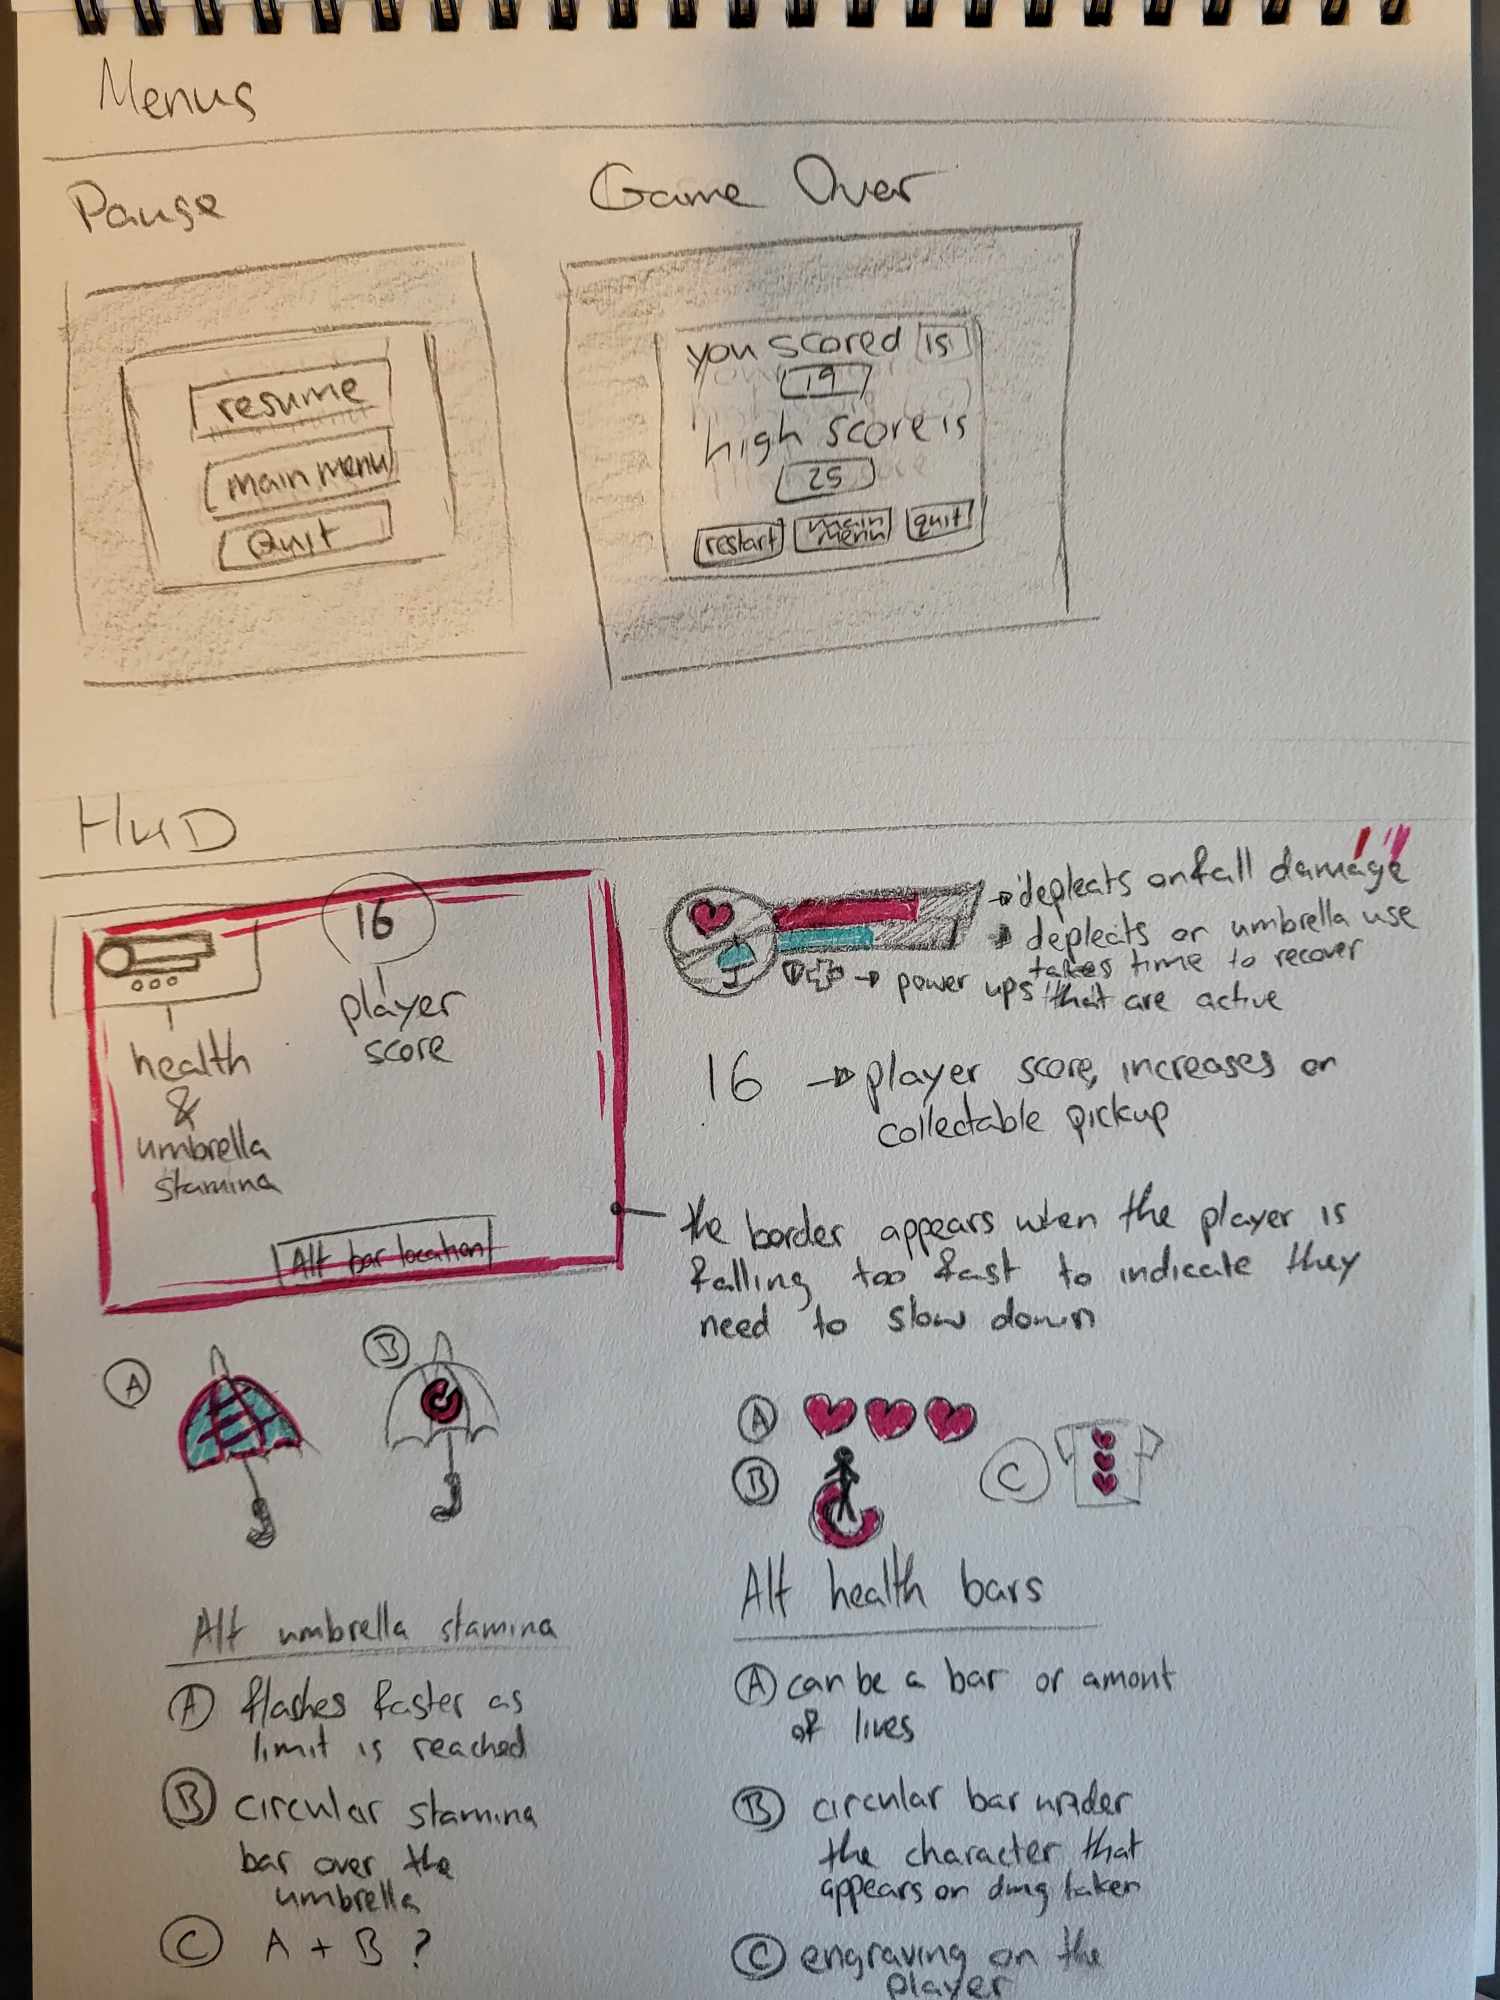 Menus
Pause
Game Over
resume
main menu
Quit
you scored is
19
high score is
25
restart
main
menu
quit
HUD
16
player
score
health
&
umbrella
stamina
Alt bar location
depleats on fall damage
depleats on umbrella use
takes time to recover
power ups that are active
16 player score, increases on
collectable pickup
the border appears when the player is
falling too fast to indicate they
need to slow down
A
B
Alt umbrella stamina
A flashes faster as
limit is reached
B circular stamina
bar over the
umbrella
C A + B ?
A
B
C
Alt health bars
A can be a bar or amont
of lives
B circular bar under
the character that
appears on dmg taken
C engraving on the
player